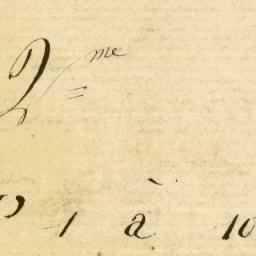 2me
1 à 10